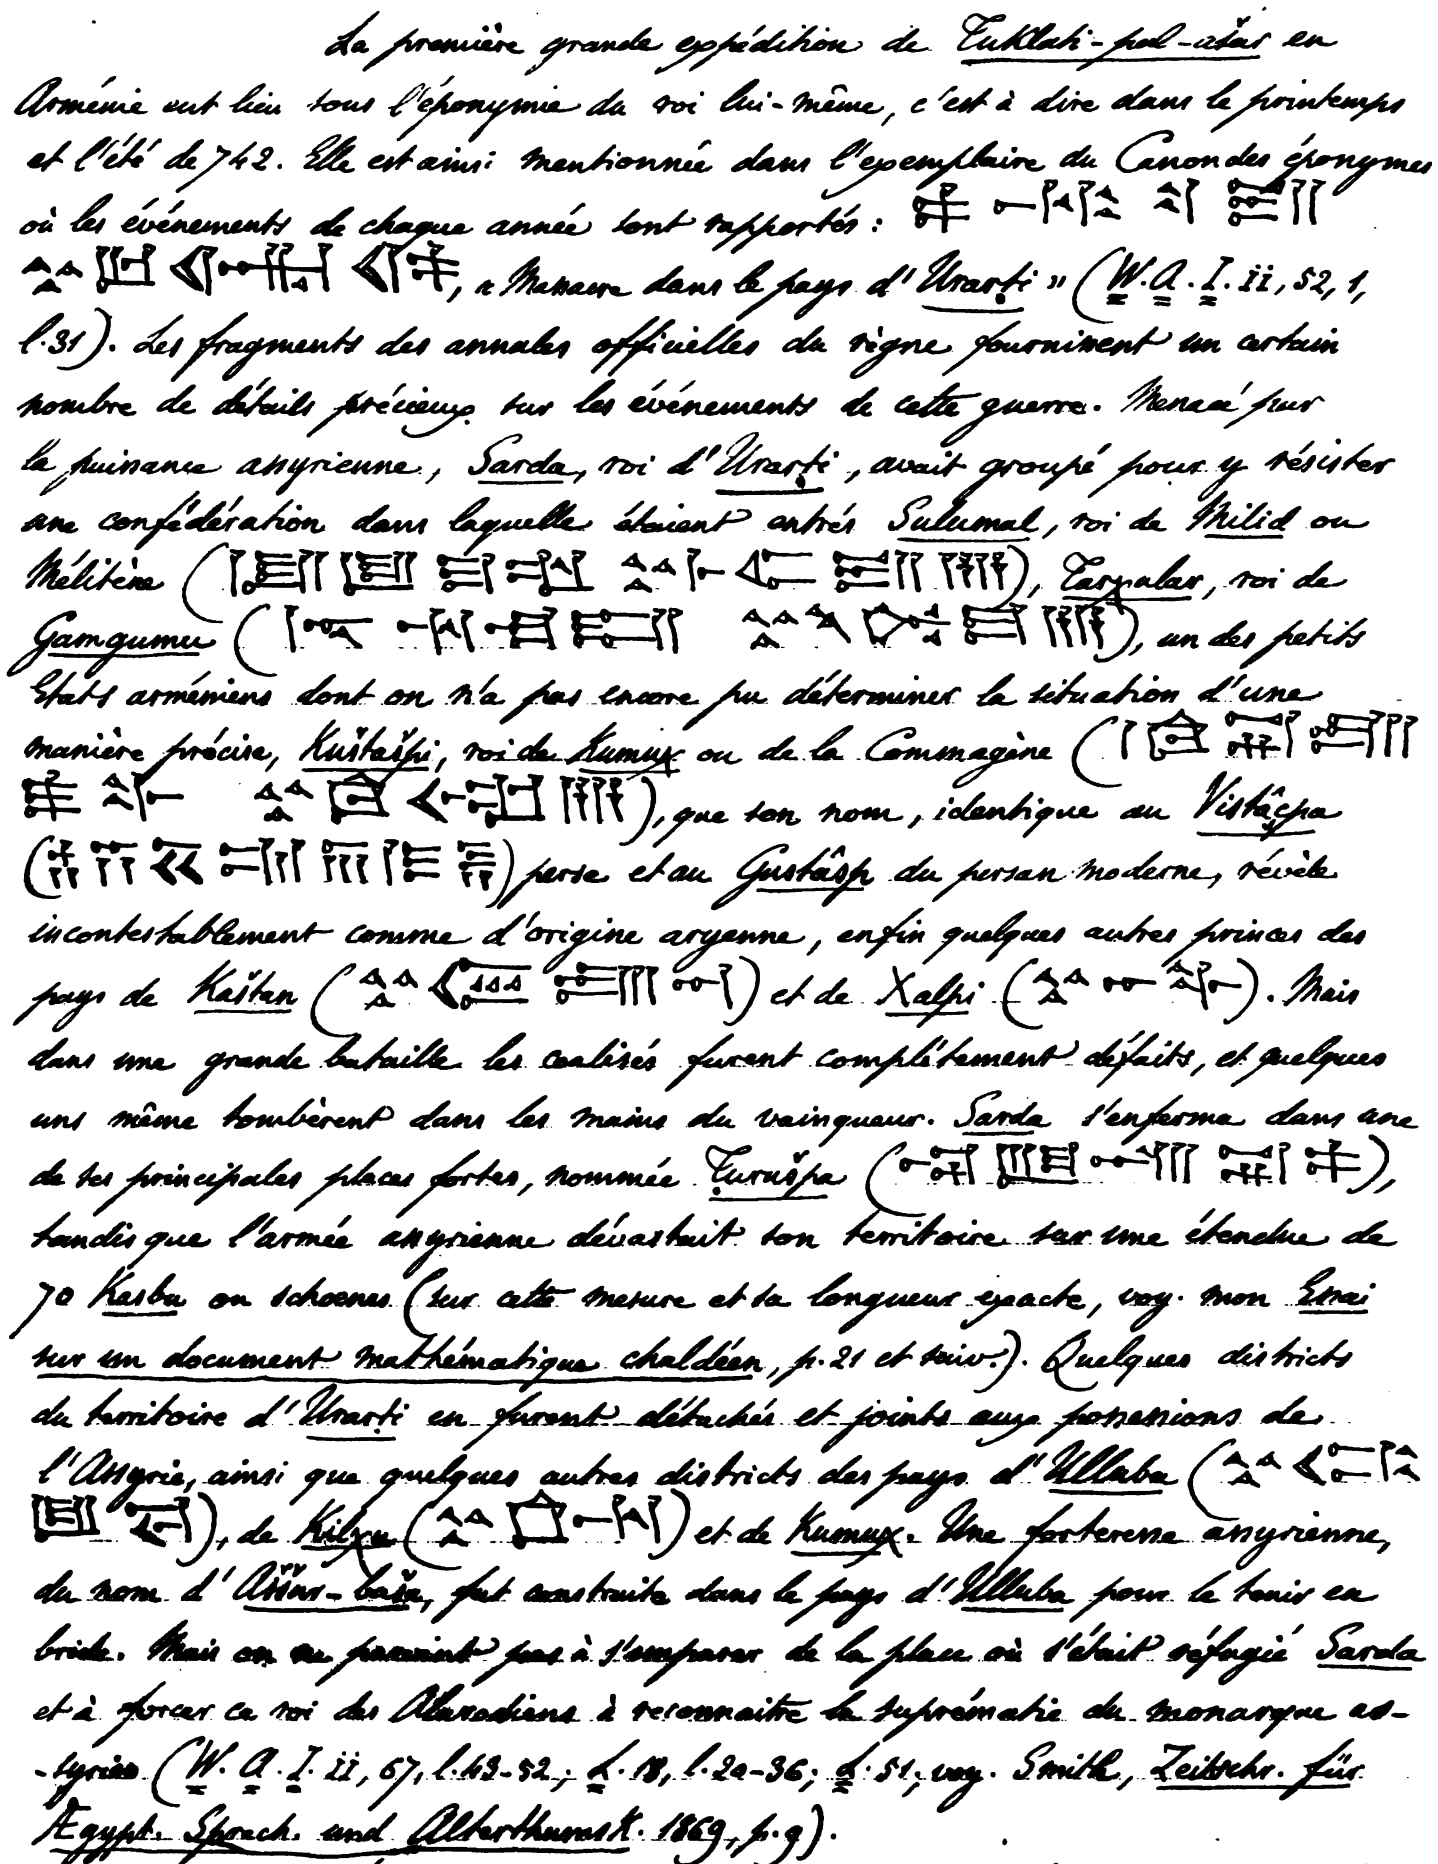 La première grande expédition de Tuklati-pal-ašar en
Arménie eut lieu sous l'éponymie du roi lui-même, c'est à dire dans le printemps
et l'été de 742. Elle est ainsi mentionnée dans l'exemplaire du Canon des éponymes
où les événements de chaque année sont rapportés :
, « Massacre dans le pays d'Urarṭi » (W.A.I. ii, 52, 1,
l.31). Les fragments des annales officielles du règne fournissent un certain
nombre de détails précieux sur les événements de cette guerre. Menacé par
la puissance assyrienne, Sarda, roi d'Urarṭi, avait groupé pour y résister
une confédération dans laquelle étaient entrés Sulumal, roi de Milid ou
Mélitène ( ), Tarχular, roi de
Gamgumu ( ), un des petits
Etats arméniens dont on n'a pas encore pu déterminer la situation d'une
manière précise, Kuštašpi, roi de Kumuχ ou de la Commagène (
), que son nom, identique au Vistâçpa
( ) perse et au Gustâsp du persan moderne, révèle
incontestablement comme d'origine aryenne, enfin quelques autres princes des
pays de Kaštan ( ) et de Χalpi ( ). Mais
dans une grande bataille les coalisés furent complétement défaits, et quelques
uns même tombèrent dans les mains du vainqueur. Sarda s'enferma dans une
de ses principales places fortes, nommée Ṭurušpa ( ),
tandis que l'armée assyrienne dévastait son territoire sur une étendue de
70 Kasbu ou schoenes (sur cette mesure et sa longueur exacte, voy. mon Essai
sur un document mathématique chaldéen, p.21 et suiv.). Quelques districts
du territoire d'Urarṭi en furent détachés et joints aux possessions de
l'Assyrie, ainsi que quelques autres districts des pays d'Ulluba (
), de Kilχu ( ) et de Kumuχ. Une forteresse assyrienne,
du nom d'Aššur-baša, fut construite dans le pays d'Ulluba pour le tenir en
bride. Mais on ne parvint pas à s'emparer de la place où s'était réfugié Sarda
et à forcer ce roi des Alarodiens à reconnaitre la suprématie du monarque as-
-syrien (W.A.I. ii, 67, l.43-52 ; L.18, l.20-36 ; L.51 ; voy. Smith, Zeitschr. für
Ægypt. Sprach. und Alterthumsk. 1869, p.9).